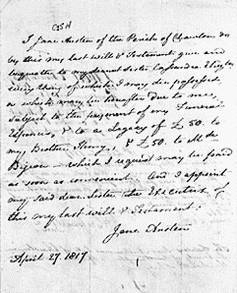 I Jane Austen of the Parish of Chawton do
by this my last will & Testament give and
bequeath to my dearest Sister Cassandra Elizth
every thing of which I may die possessed,
or which may be hereafter due to me,
subject to the payment of my Funeral
Expences, & to a Legacy of £50. to
my Brother Henry, & £50. to Mde
Bigeon - which I request may be paid
as soon as convenient. And I appoint
my said dear Sister the Executrix of
this my last will & Testament.
Jane Austen
April 27. 1817